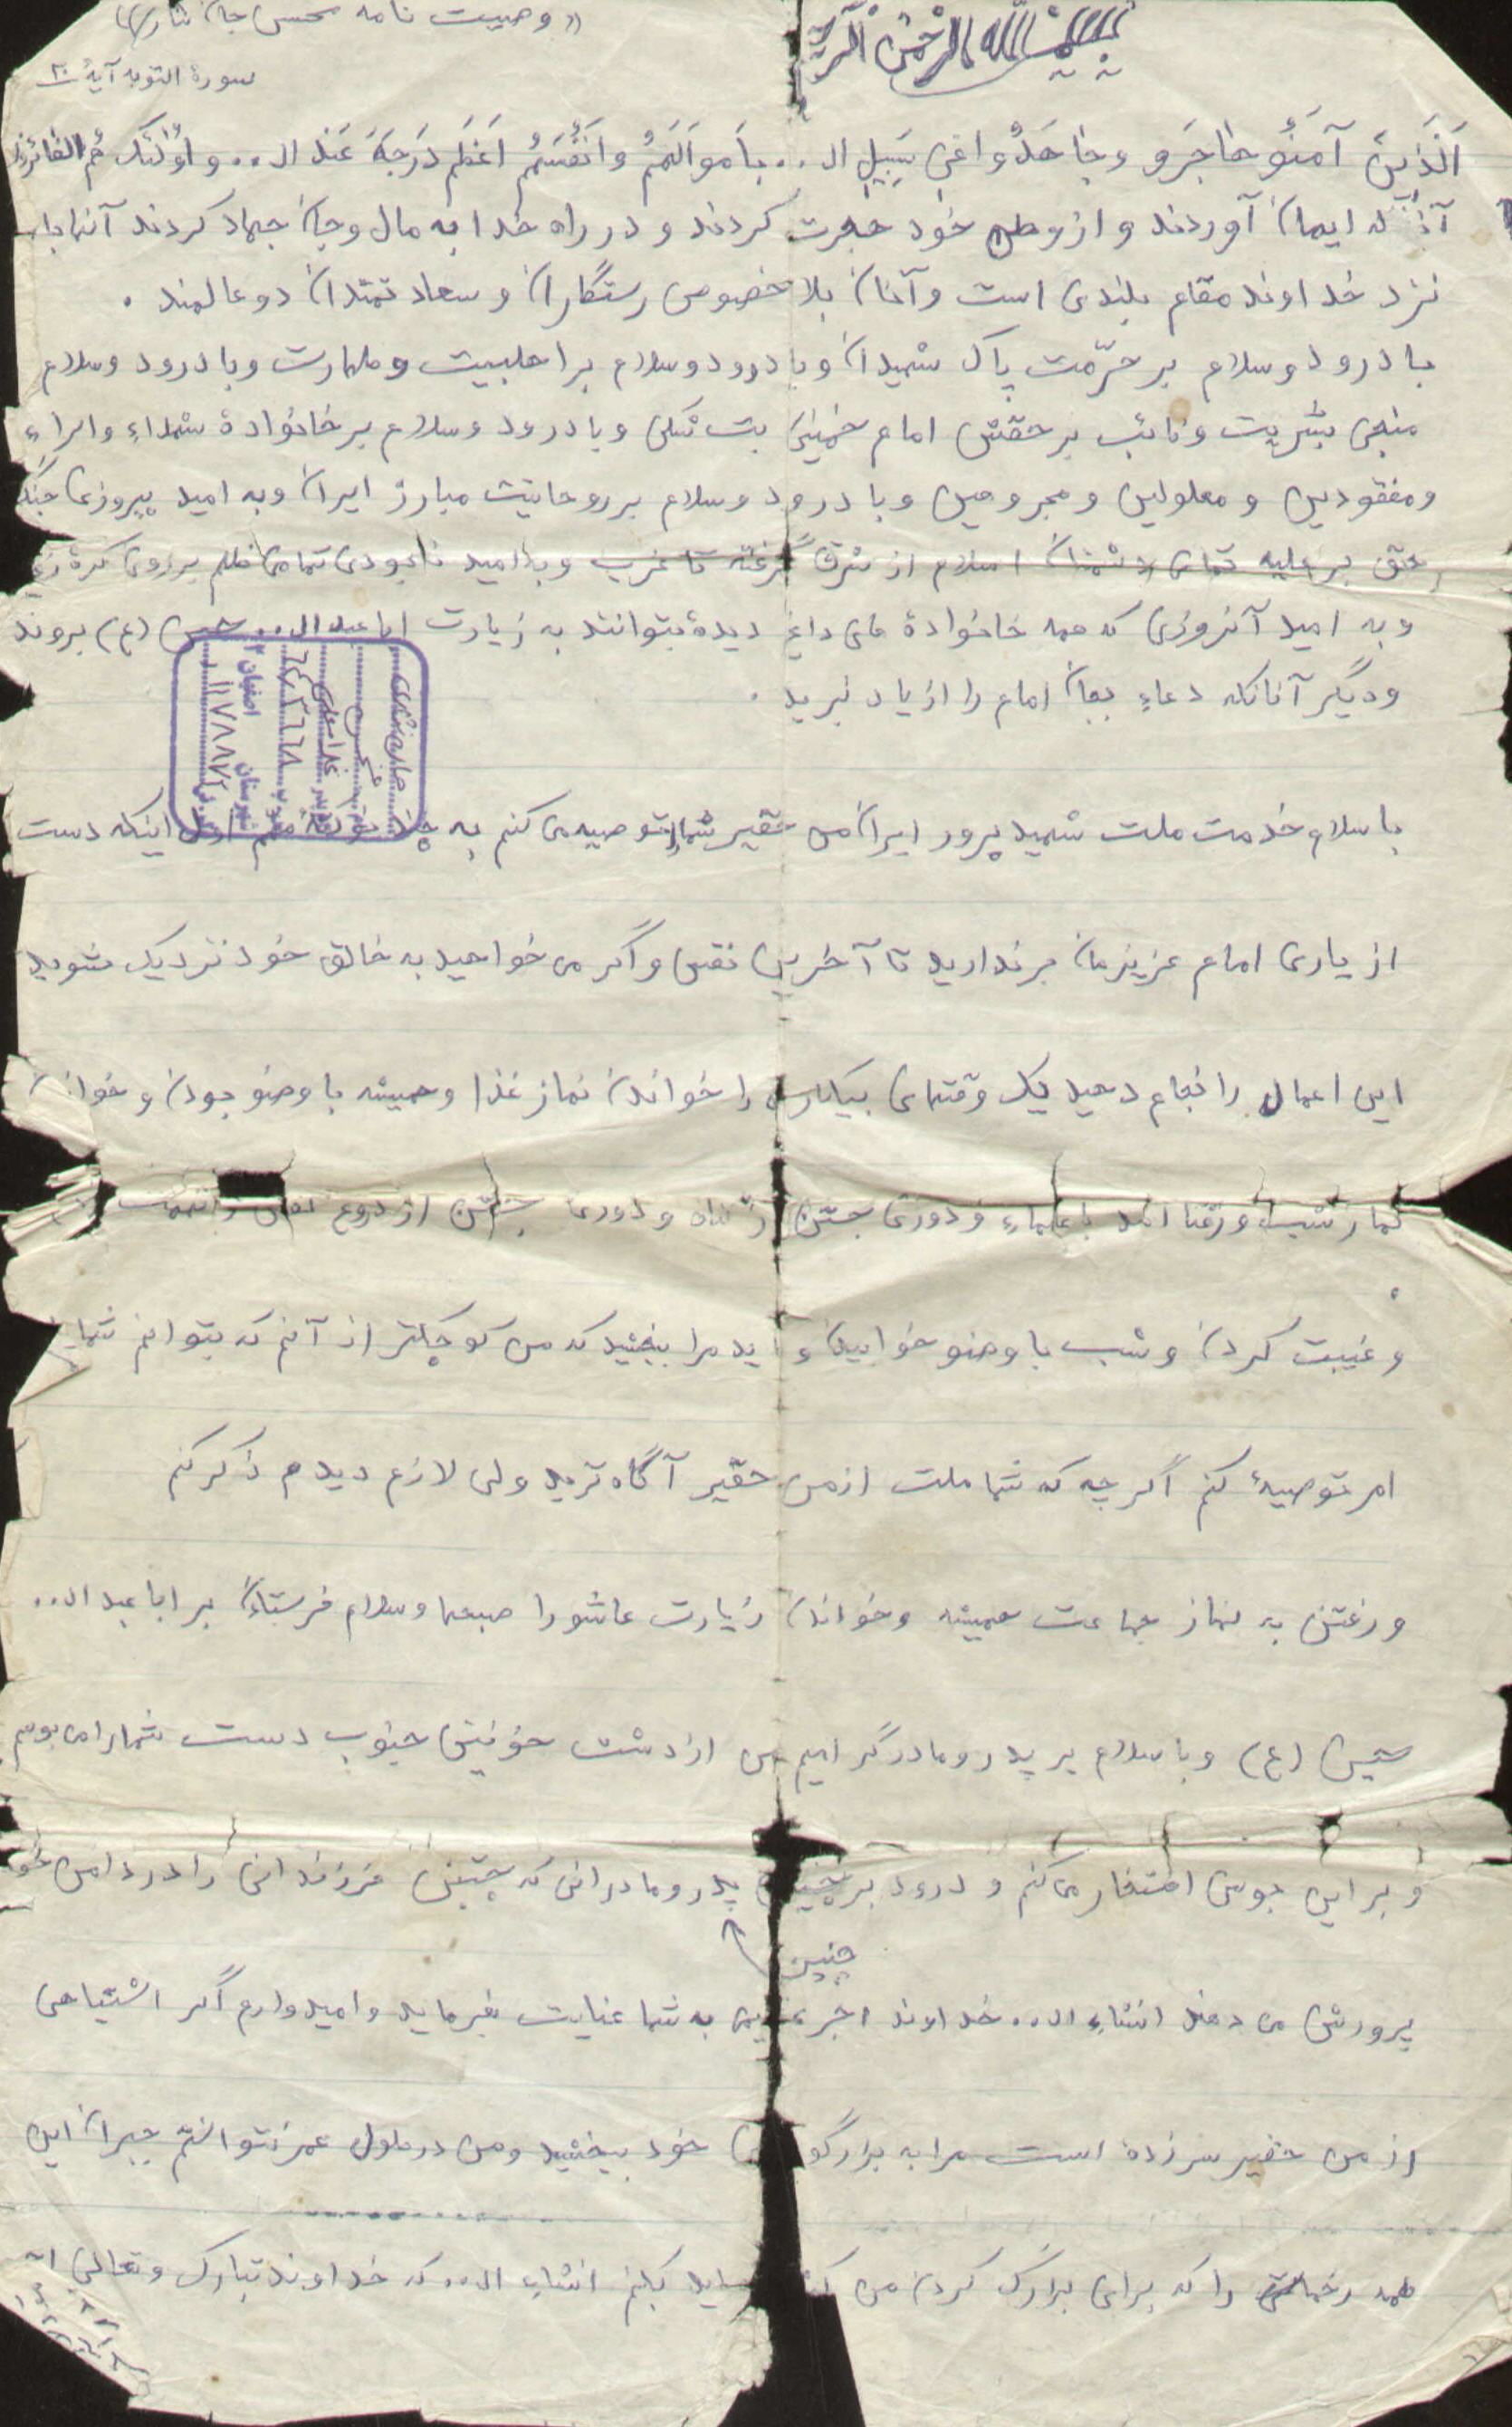 بسم الله الرحمن الرحیم
«وصیت نامه محسن جان نثاری»
سورهٔ التوبه آیهٔ ۲۰
اَلَّذینَ آمَنُو هاجَرو وجاهَدُوا فی سَبیلِ ال.. بِاَموالَهِمُ واَنفُسَهُم اَعظَم دَرَجَهً عَندَ ال.. و اوُلئک هُم الفائزون
آنانکه ایمان آوردند و از وطن خود هجرت کردند و در راه خدا به مال و جان جهاد کردند آنها را
نزد خداوند مقام بلندی است و آنان بلاخصوص رستگاران و سعادتمندان دو عالمند .
با درود و سلام بر حرّمت پاک شهیدان و با درود و سلام بر اهلبیت و طهارت و با درود و سلام
منجی بشریت و نائب برحقش امام خمینی بت شکن و با درود و سلام بر خانوادهٔ شهداء و اسراء
و مفقودین و معلولین و مجروحین و با درود و سلام بر روحانیت مبارز ایران و به امید پیروزی جنگ
حق بر علیه تمامی دشمنان اسلام از شرق گرفته تا غرب و به امید نابودی تمامی ظلم بر روی کرهٔ زمین
و به امید آنروزی که همه خانوادهٔ های داغ دیدهٔ بتوانند به زیارت اباعبدال.. حسین (ع) بروند
و دیگر آنانکه دعاء بجان امام را از یاد نبرید .
جان نثاری
محسن
غلامعلی
اصفهان
شهرستان
با سلام خدمت ملت شهید پرور ایران من حقیر شما را توصیه می کنم به چند نکته مهم اول اینکه دست
از یاری امام عزیزمان برندارید تا آخرین نفس و اگر می خواهید به خالق خود نزدیک شوید
این اعمال را انجام دهید یک وقتهای بیکاری را خواندن نماز غذا و همیشه با وضو بودن و خواندن
نماز شب و رفت آمد با علماء و دوری جستن از گناه و دوری جستن از دروغ
و غیبت کردن و شب با وضو خوابیدن و باید مرا ببخشید که من کوچکتر از آنم که بتوانم شما را
امر توصیهٔ کنم اگر چه که شما ملت از من حقیر آگاه ترید ولی لازم دیدم ذکر کنم
و رفتن به نماز جماعت همیشه و خواندن زیارت عاشورا صبحها و سلام فرستادن بر اباعبدال..
حسین (ع) و با سلام بر پدر و مادر گرامیم من از دشت خونین جنوب دست شما را می بوسم
و بر این بوسی افتخار می کنم و درود بر چنین پدر و مادرانی که چنین فرزندانی را در دامن خود
چنین
پرورش می دهند انشاء ال.. خداوند اجر عظیمی به شما عنایت بفرماید و امیدوارم اگر اشتباهی
از من حقیر سرزده است مرا به بزرگواری خود ببخشید و من در طول عمر نتوانستم جبران این
همه زحماتی را که برای بزرگ کردن من کشیده‌اید بکنم انشاء ال.. که خداوند تبارک و تعالی